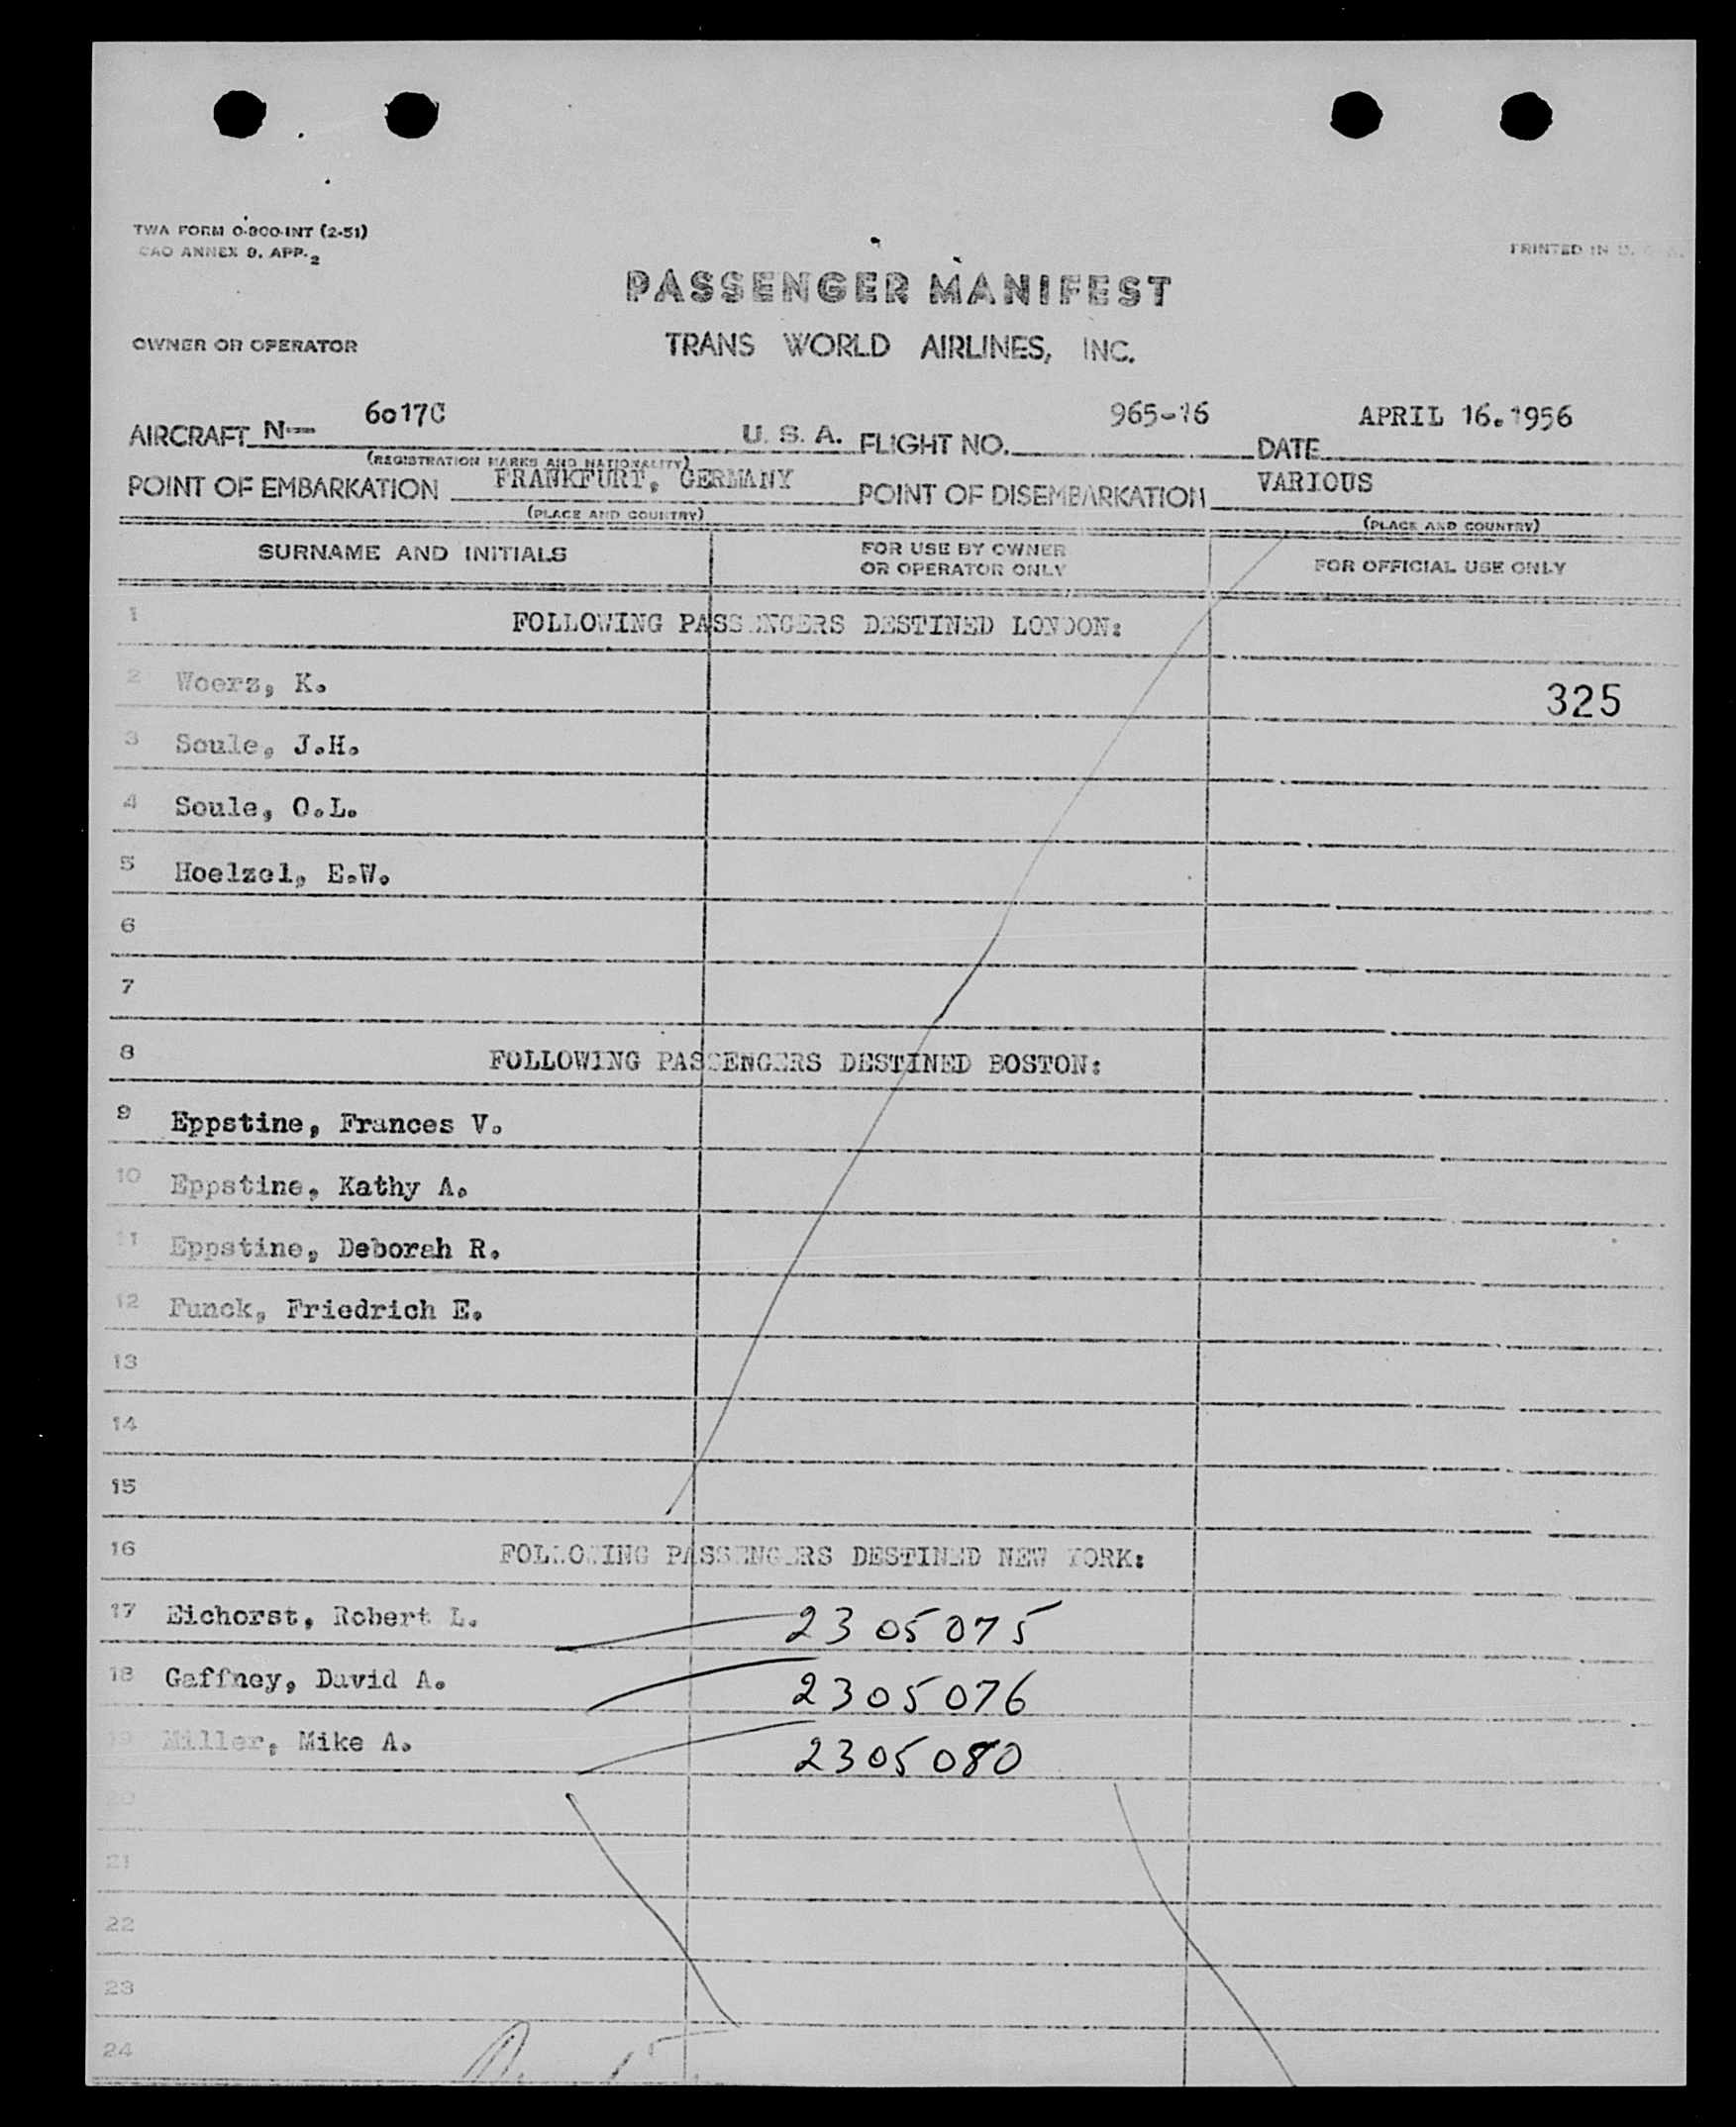 TWA FORM O-800-INT (2-51)
CAO ANNEX 9. APP. 2
PRINTED IN U.
PASSENGER MANIFEST
OWNER OR OPERATOR
TRANS WORLD AIRLINES, INC.
AIRCRAFT N— 6017C U. S. A. FLIGHT NO. 965-16 DATE APRIL 16.1956
(REGISTRATION MARKS AND NATIONALITY)
POINT OF EMBARKATION FRANKFURT, GERMANY POINT OF DISEMBARKATION VARIOUS
(PLACE AND COUNTRY) (PLACE AND COUNTRY)
SURNAME AND INITIALS FOR USE BY OWNER OR OPERATOR ONLY FOR OFFICIAL USE ONLY
1 FOLLOWING PASSENGERS DESTINED LONDON:
2 Woerz, K. 325
3 Soule, J.H.
4 Soule, O.L.
5 Hoelzel, E.W.
6
7
8 FOLLOWING PASSENGERS DESTINED BOSTON:
9 Eppstine, Frances V.
10 Eppstine, Kathy A.
11 Eppstine, Deborah R.
12 Funck, Friedrich E.
13
14
15
16 FOLLOWING PASSENGERS DESTINED NEW YORK:
17 Eichorst, Robert L. 2305075
18 Gaffney, David A. 2305076
19 Miller, Mike A. 2305080
20
21
22
23
24